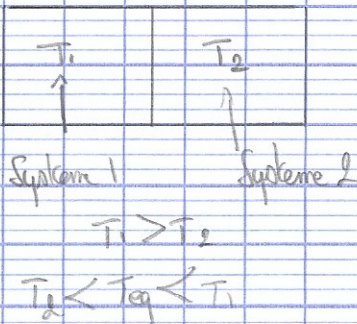 T₁ T₂
Système 1 Système 2
T₁ > T₂
T₂ < Teq < T₁